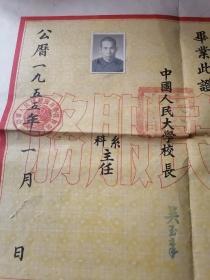 畢業此證
中國人民大學校長
吴玉章
系
科
主任
公曆一九五五年一月
日